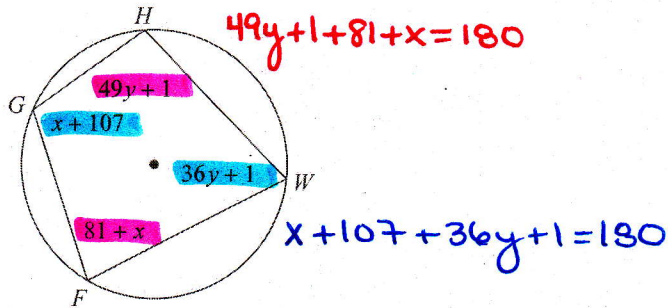 H
49y+1+81+x=180
49y + 1
G
x + 107
36y + 1
W
81 + x
x+107+36y+1=180
F